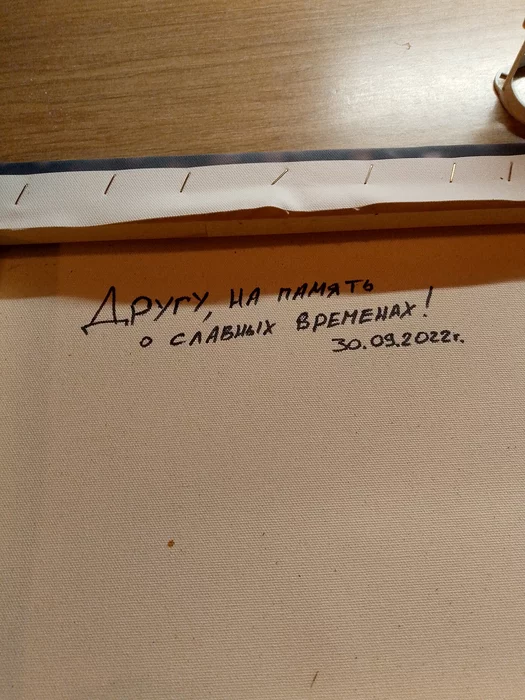 Другу, на память
о славных временах!
30.09.2022г.